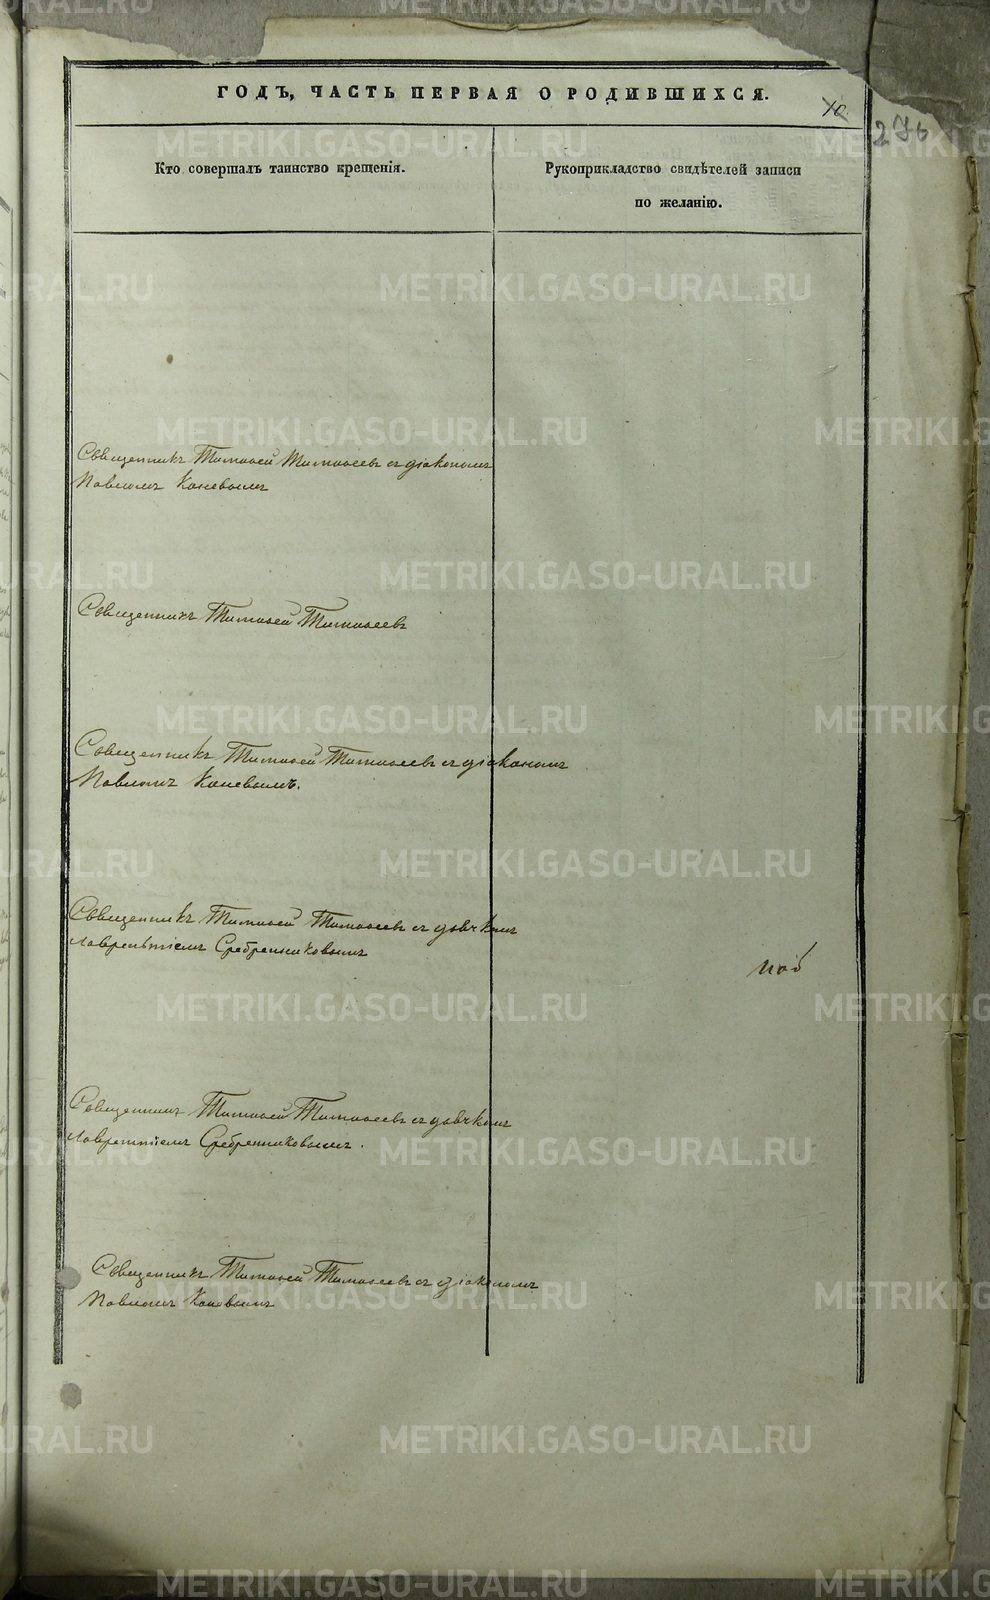 ГОДЪ, ЧАСТЬ ПЕРВАЯ О РОДИВШИХСЯ.
10
276
Кто совершалъ таинство крещенія.
Рукоприкладство свидѣтелей записи
по желанію.
Священникъ Тимоѳей Тимоѳеевъ съ діакономъ
Павломъ Каневымъ
Священникъ Тимоѳей Тимоѳеевъ
Священникъ Тимоѳей Тимоѳеевъ съ діакономъ
Павломъ Каневымъ.
Священникъ Тимоѳей Тимоѳеевъ съ дьячкомъ
Лаврентіемъ Сребренниковымъ
Священникъ Тимоѳей Тимоѳеевъ съ дьячкомъ
Лаврентіемъ Сребренниковымъ.
Священникъ Тимоѳей Тимоѳеевъ съ діакономъ
Павломъ Каневымъ
METRIKI.GASO-URAL.RU